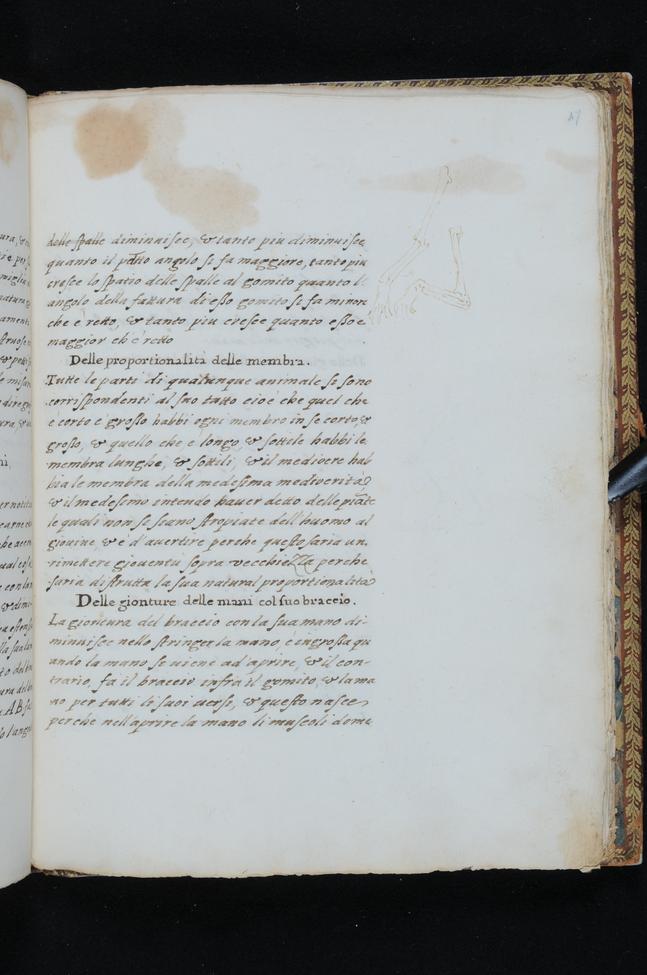 47
delle spalle diminuisce, & tanto piu diminuisce
quanto il detto angolo si fa maggiore, tanto piu
cresce lo spatio delle spalle al gomito quanto l'
angolo della fattura di esso gomito si fa minor
che è retto, & tanto piu cresce quanto esso e
maggior ch' è retto
Delle proportionalità delle membra.
Tutte le parti di qualunque animale si sono
corrispondenti al suo tutto cioè che quel che
è corto e grosso habbi ogni membro in se corto, &
grosso, & quello che e longo, & sottile habbi le
membra lunghe, & sottili, & il mediocre hab
bia le membra della medesima mediocrità
& il medesimo intendo haver detto delle piante
le quali non se siano stropiate dell'huomo al
giovine, & è d'avertire perche questo saria un
rimettere gioventu sopra vecchiezza perche
saria distrutta la sua natural proportionalita
Delle gionture delle mani col suo braccio.
La gioncura del braccio con la sua mano di-
minuisce nello stringer la mano, e ingrossa qu
ando la mano se viene ad aprire, & il con-
trario, fa il braccio infra il gomito, & la ma
no per tutti li suoi versi, & questo nasce
perche nell'aprire la mano li muscoli dome